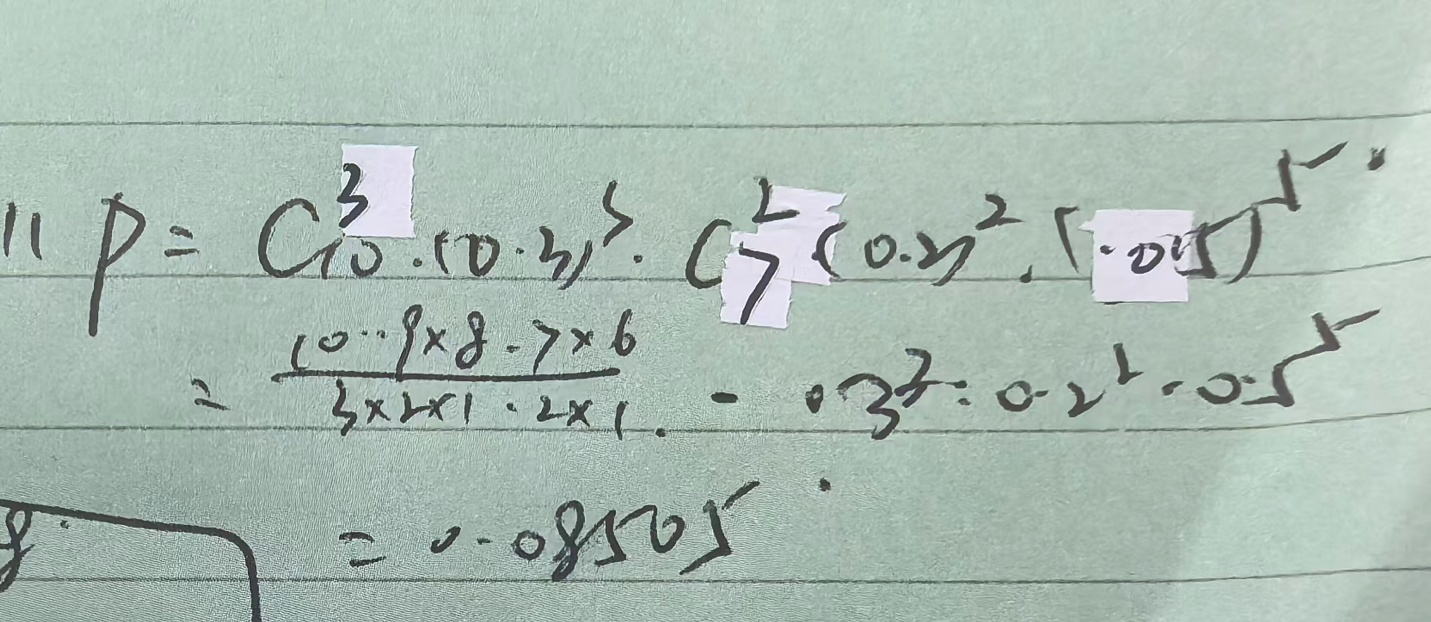 11 P = C₁₀³ · (0.3)³ · C₇² (0.2)² · (0.5)⁵ .
= (10 · 9 × 8 · 7 × 6) / (3 × 2 × 1 · 2 × 1) · 0.3³ · 0.2² · 0.5⁵
= 0.08505
8